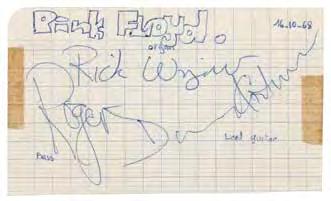 Pink Floyd. 16.10-68
organ
Rick Wright
Roger
bass
Lead guitar